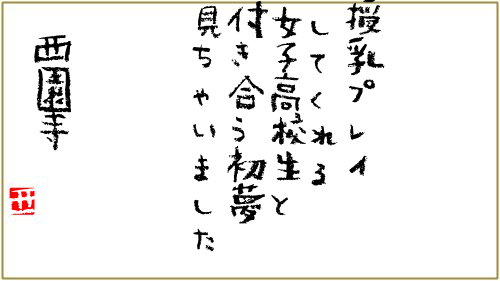 授乳プレイ
してくれる
女子高校生と
付き合う初夢
見ちゃいました
西園寺